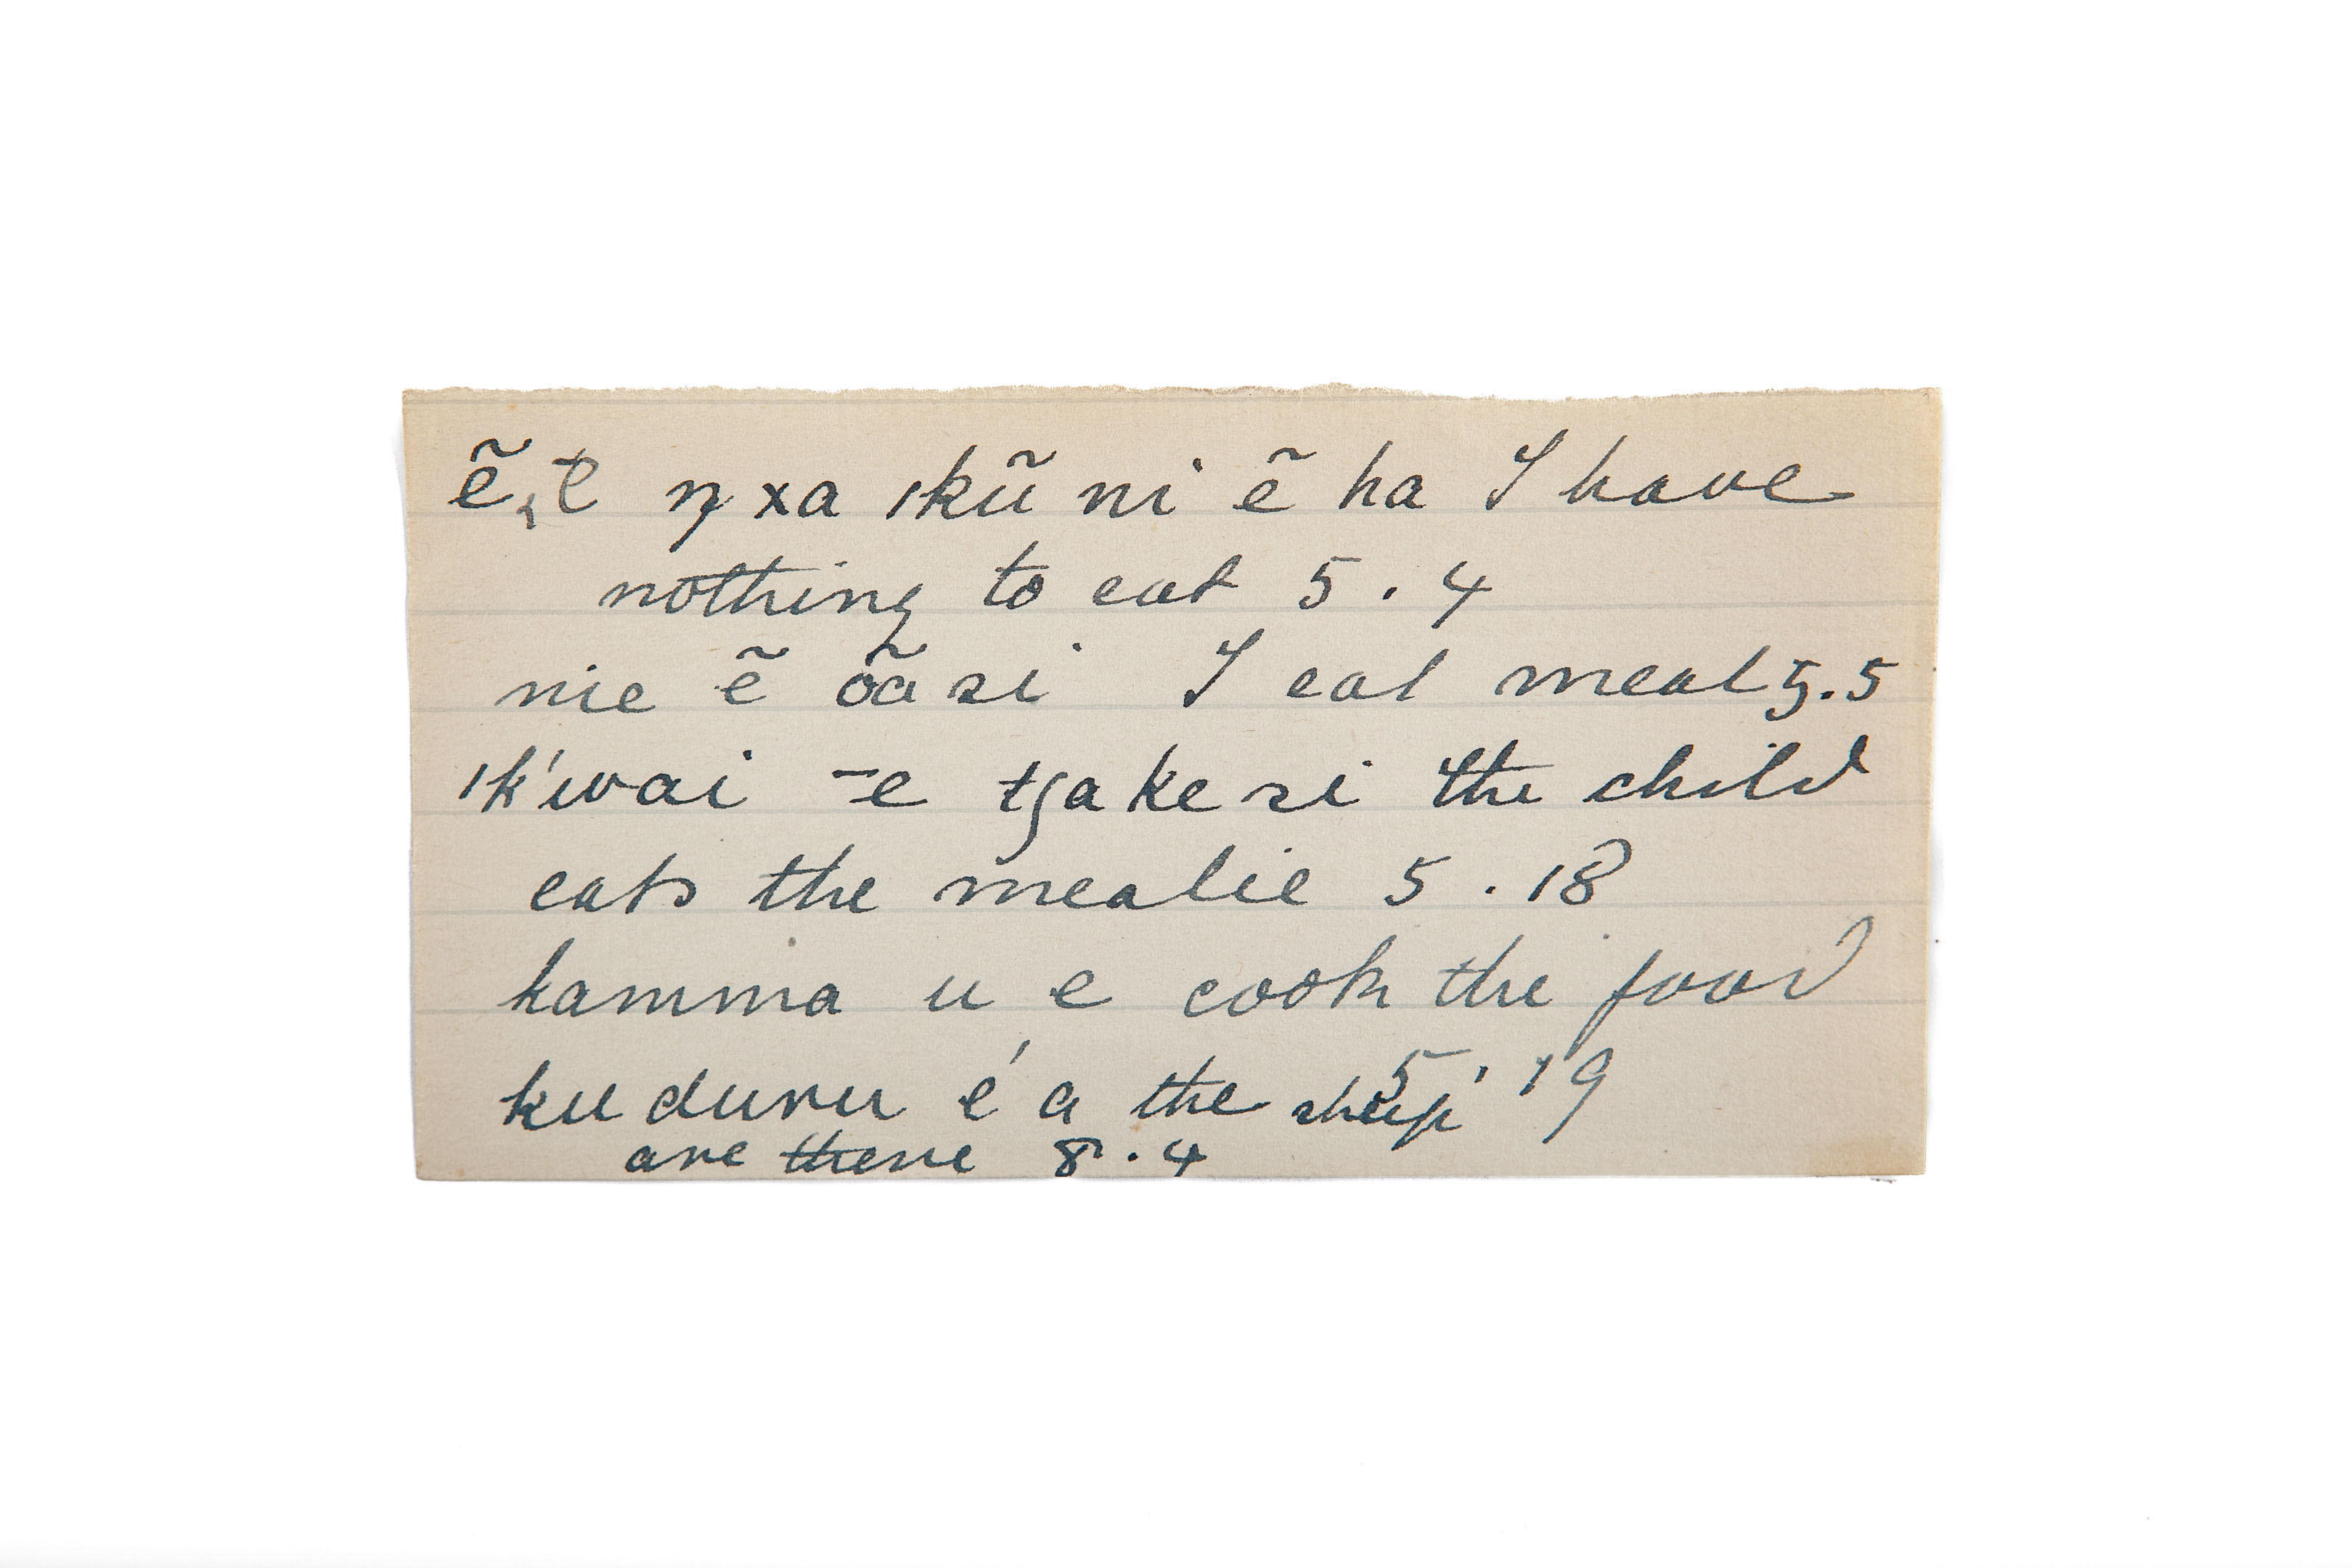 ẽ, ē ŋ xa ıkũ ni ẽ ha I have
nothing to eat 5.4
nie ẽ õãsi I eat meat 5.5
ık'wai –e tʃa ke si the child
eats the mealie 5.18
kamma u e cook the food
5.19
ku duru é a the sheep
are there 8.4